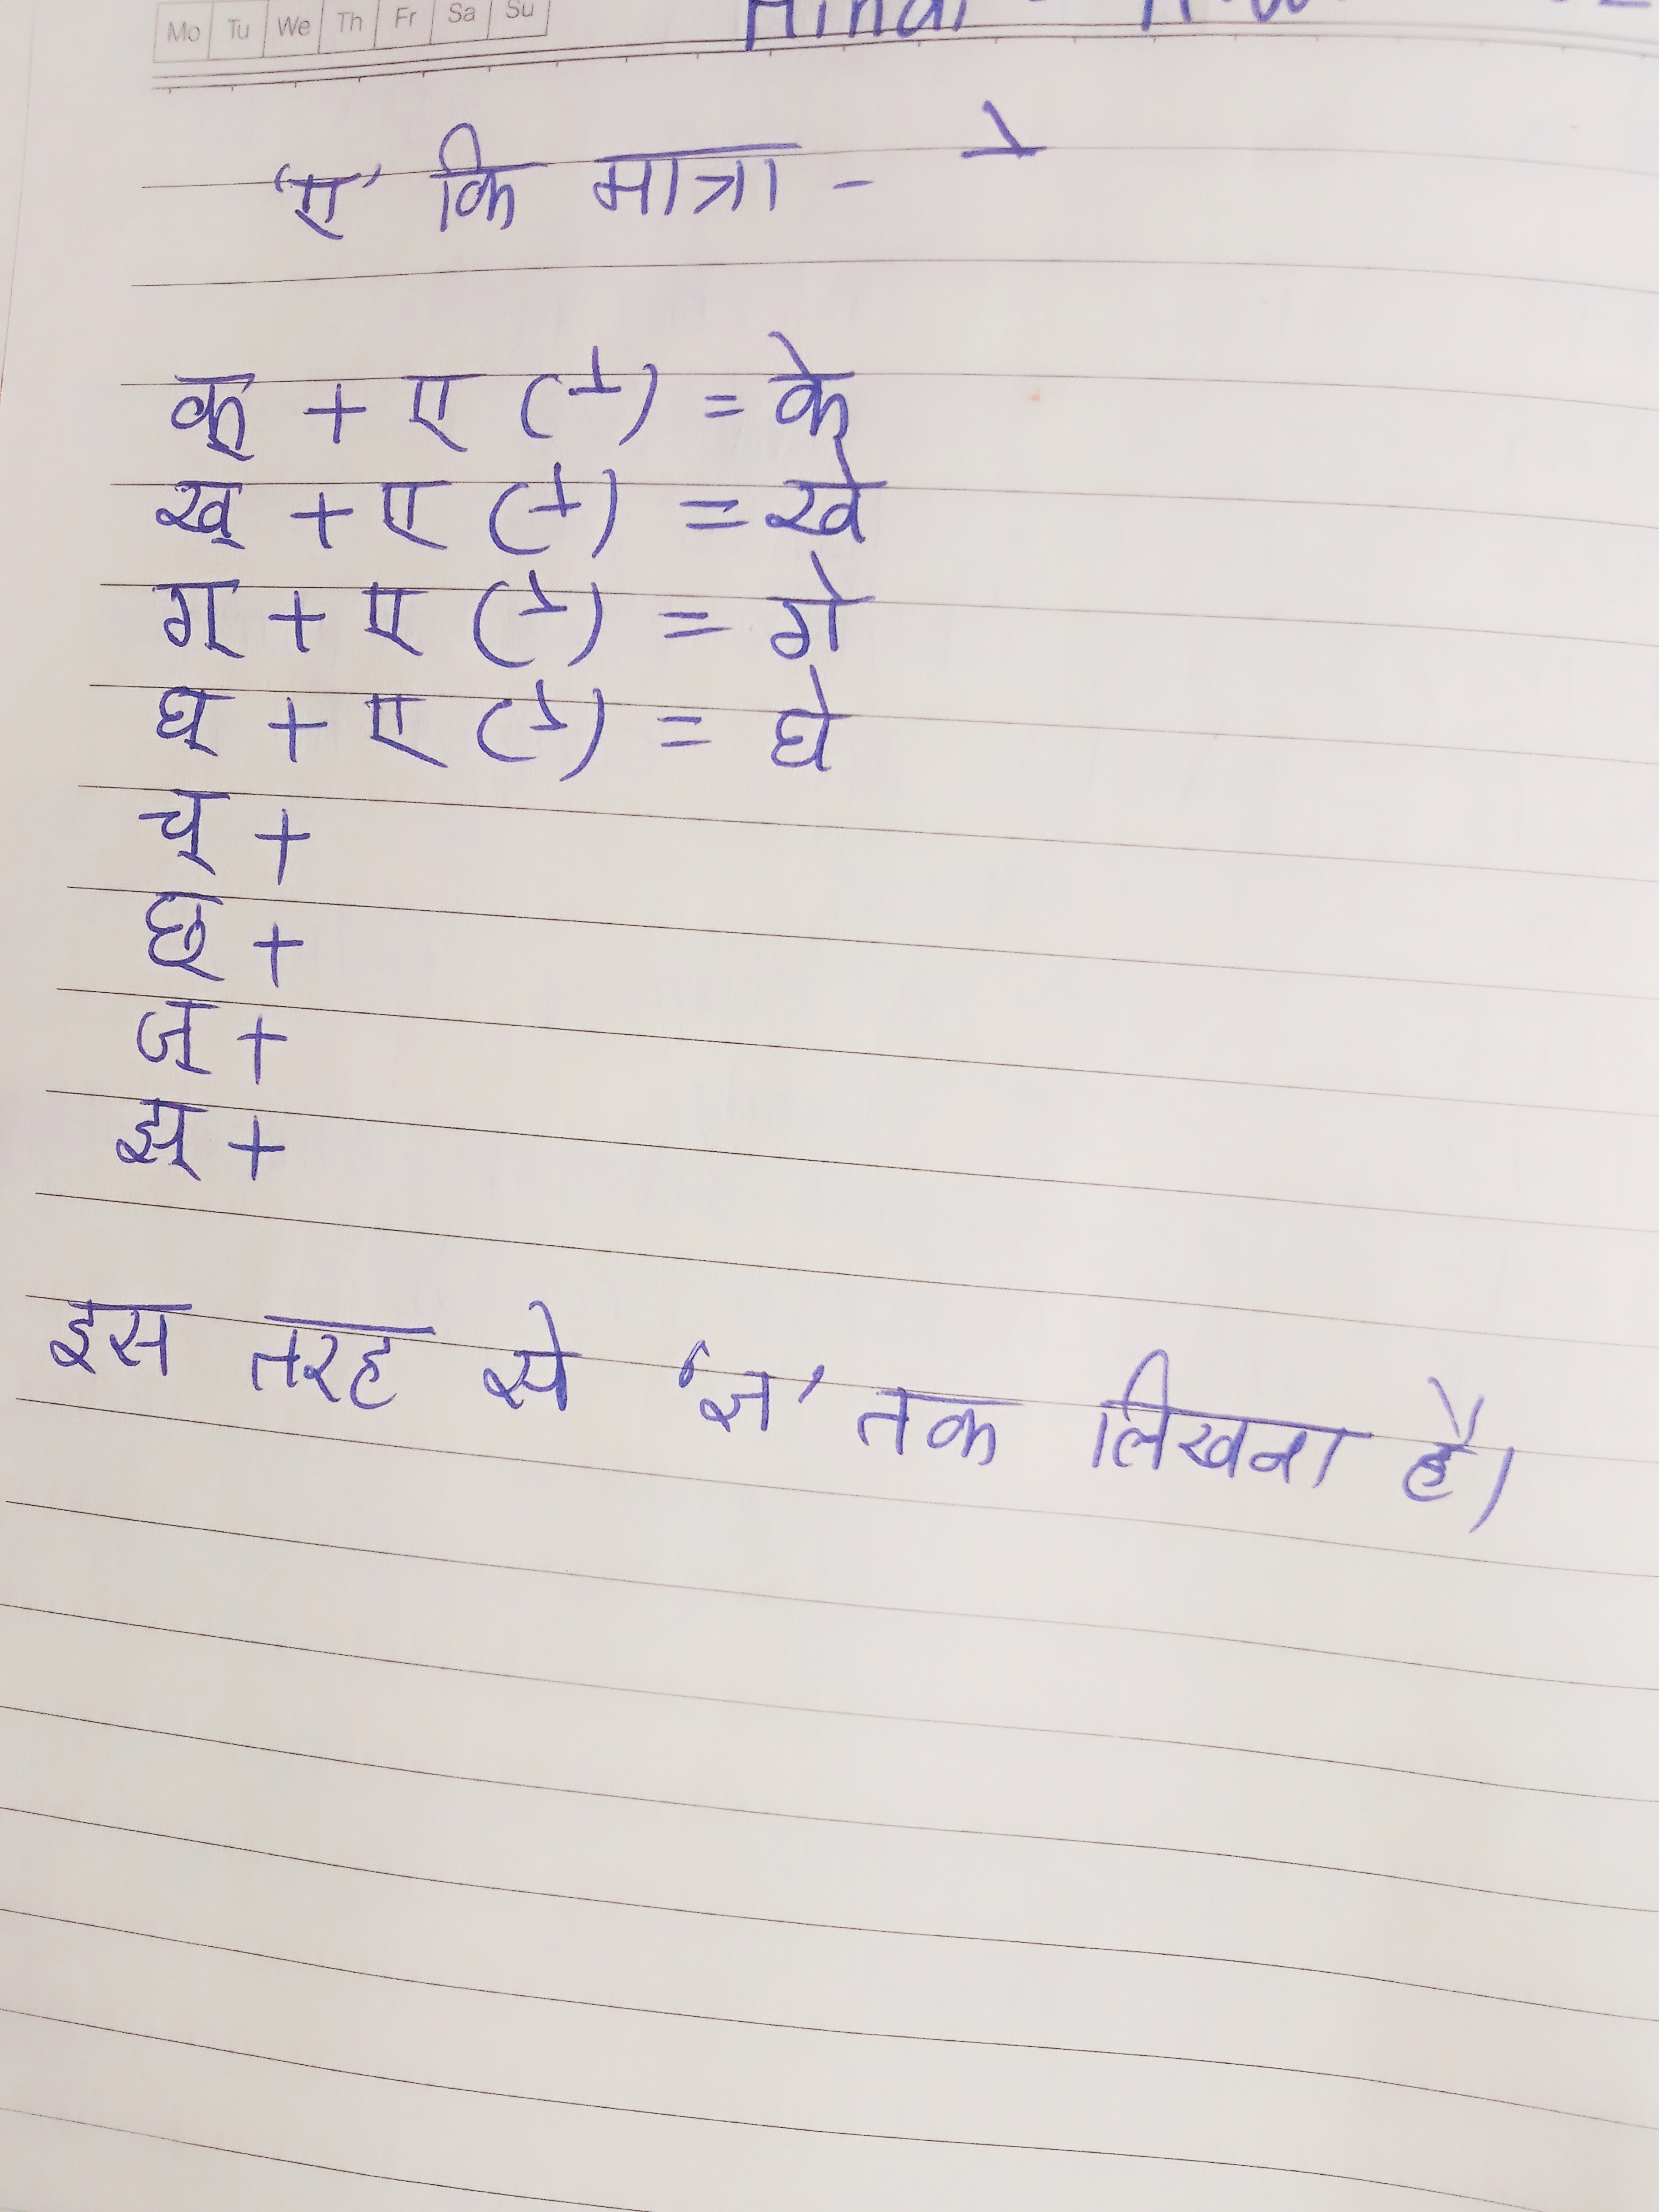 Mo Tu We Th Fr Sa Su
Hindi -
'ए' कि मात्रा - े
क् + ए (े) = के
ख् + ए (े) = खे
ग् + ए (े) = गे
घ् + ए (े) = घे
च् +
छ् +
ज् +
झ् +
इस तरह से 'ज्ञ' तक लिखना है।